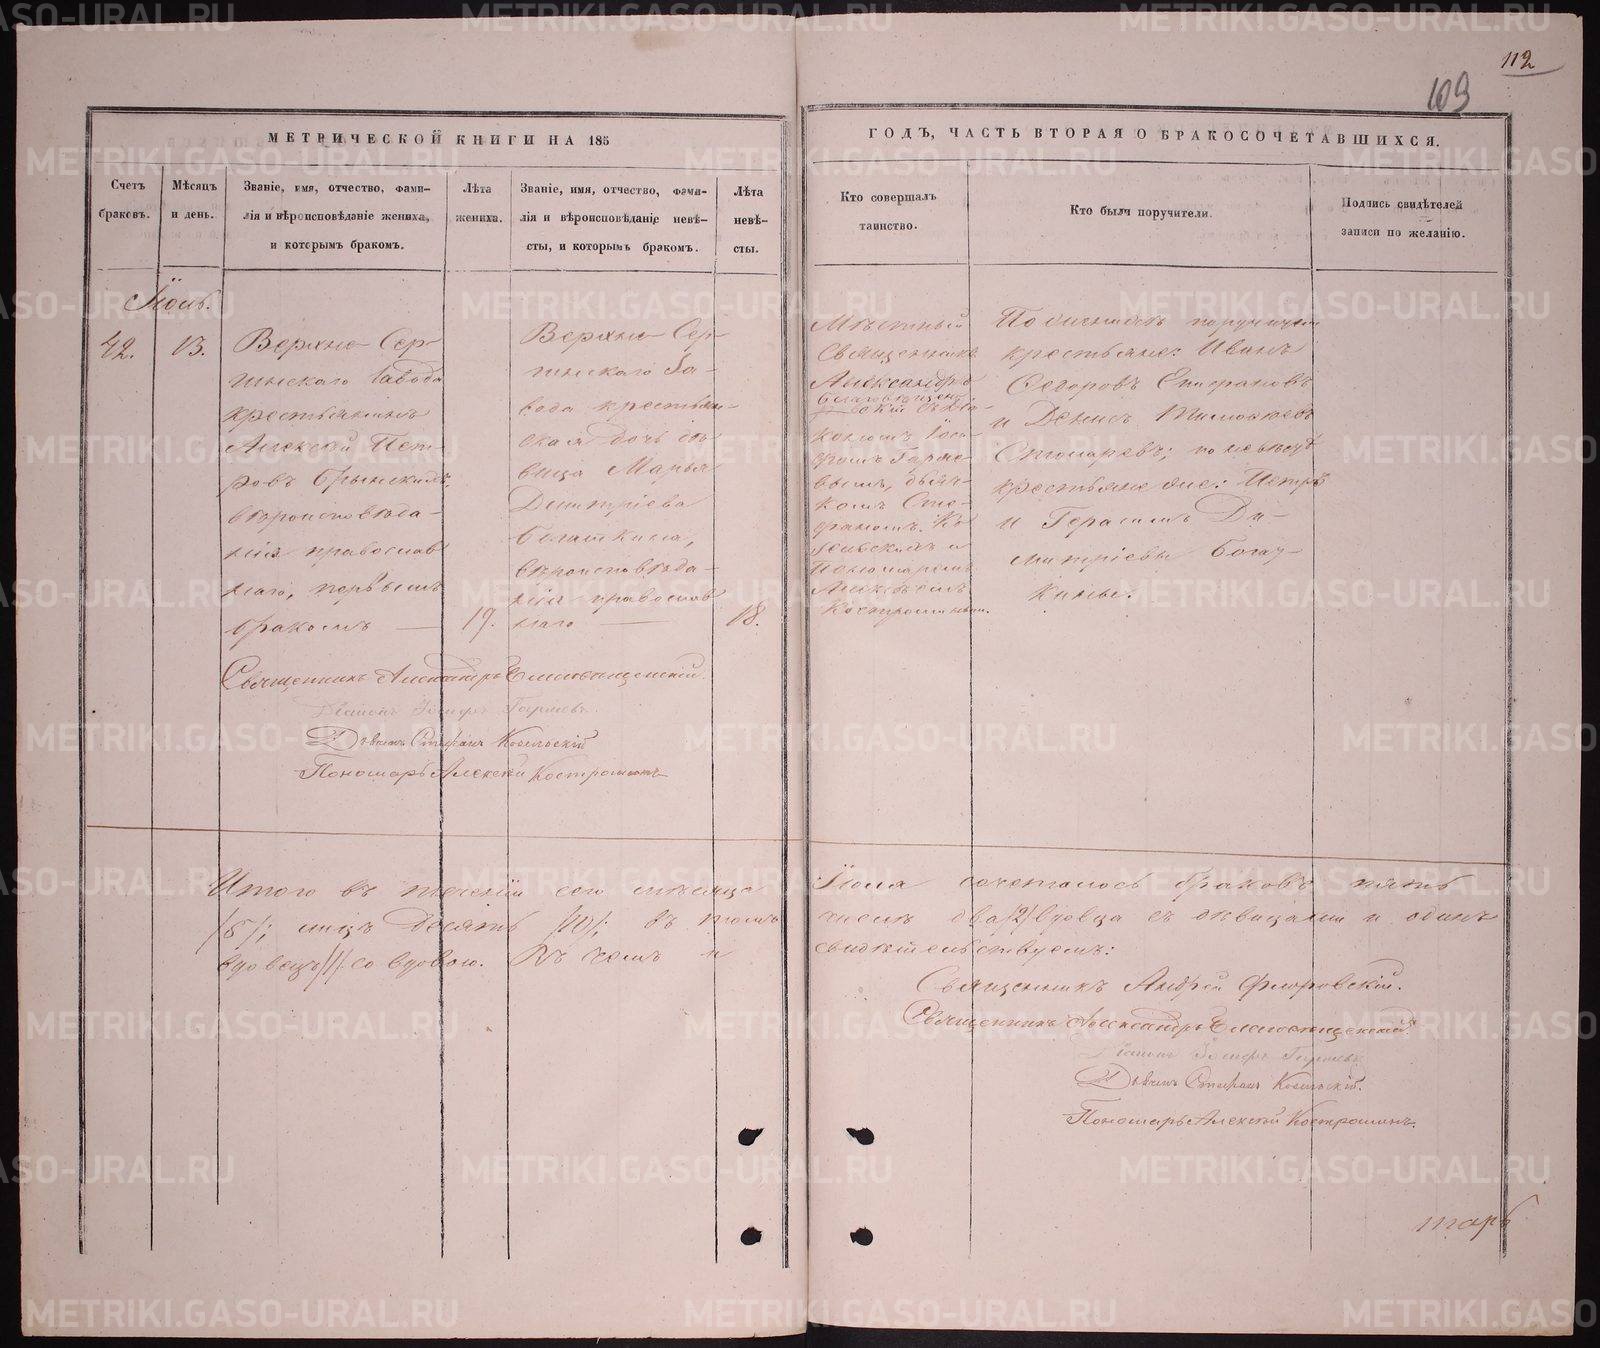 112
103
МЕТРИЧЕСКОЙ КНИГИ НА 185
ГОДЪ, ЧАСТЬ ВТОРАЯ О БРАКОСОЧЕТАВШИХСЯ.
Счетъ браковъ.
Мѣсяцъ и день.
Званіе, имя, отчество, фами-
лія и вѣроисповѣданіе жениха,
и которымъ бракомъ.
Лѣта
жениха.
Званіе, имя, отчество, фами-
лія и вѣроисповѣданіе невѣ-
сты, и которымъ бракомъ.
Лѣта
невѣ-
сты.
Кто совершалъ
таинство.
Кто были поручители.
Подпись свидѣтелей
записи по желанію.
Іюль.
42.
13.
Верхне Сер-
гинскаго Завода
крестьянинъ
Алексей Пет-
ровъ
вѣроисповѣда-
нія православ
наго, первымъ
бракомъ —
19.
Верхне Сер-
гинскаго За-
вода крестьян-
ская дочь дѣ-
вица Марья
Димитріева
вѣроисповѣда-
нія православ
наго —
18.
Мѣстный
Священникъ
Александръ
Благовѣщен-
скій съ діа-
кономъ Іоси-
фомъ Гаряе-
вымъ, дьяч-
комъ Сте-
фаномъ Ко-
зельскимъ и
Пономаремъ
Алексѣемъ
Костроминымъ.
По женихѣ поручители
крестьяне: Иванъ
Ѳедоровъ Епифановъ
и Денисъ Тимоѳеевъ
по невѣстѣ
крестьяне оне: Петръ
и Герасимъ Ди-
митріевы
Священникъ Александръ Благовѣщенскій.
Діаконъ Іосифъ Гаряевъ.
Дьячекъ Стефанъ Козельскій
Пономарь Алексей Костроминъ
Итого въ теченіи сего мѣсяца Іюля сочеталось браковъ пять
/5/; лицъ десять /10/; въ томъ числѣ два /2/ вдовца съ дѣвицами и одинъ
вдовецъ /1/ со вдовою. Въ чемъ и свидѣтельствуемъ:
Священникъ Андрей Флоровскій.
Священникъ Александръ Благовѣщенскій.
Діаконъ Іосифъ Гаряевъ
Дьячекъ Стефанъ Козельскій.
Пономарь Алексей Костроминъ.
тарь
METRIKI.GASO-URAL.RU